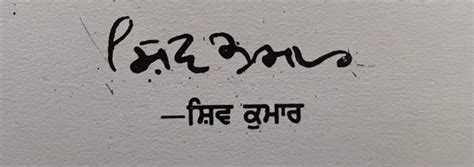 ਸ਼ਿਵ ਕੁਮਾਰ
—ਸ਼ਿਵ ਕੁਮਾਰ